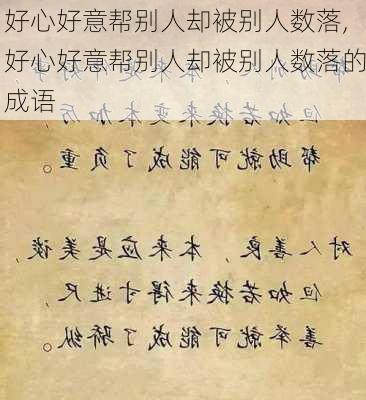 好心好意帮别人却被别人数落,
好心好意帮别人却被别人数落的
成语
但如若换来变本加厉，
帮助就可能成了负重。
对人善良，本来应是美谈，
但如若换来得寸进尺，
善举就可能成了骄纵。